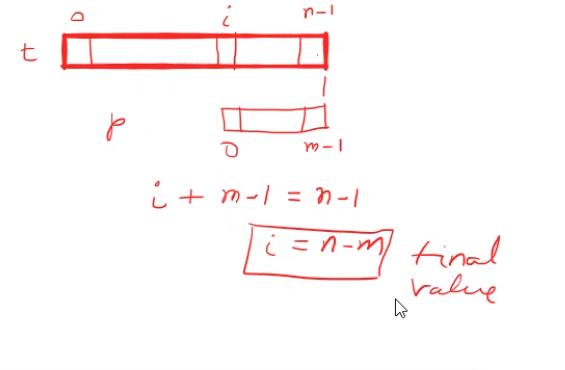 0 i n-1
t
p
0 m-1
i + m-1 = n-1
i = n-m final
value